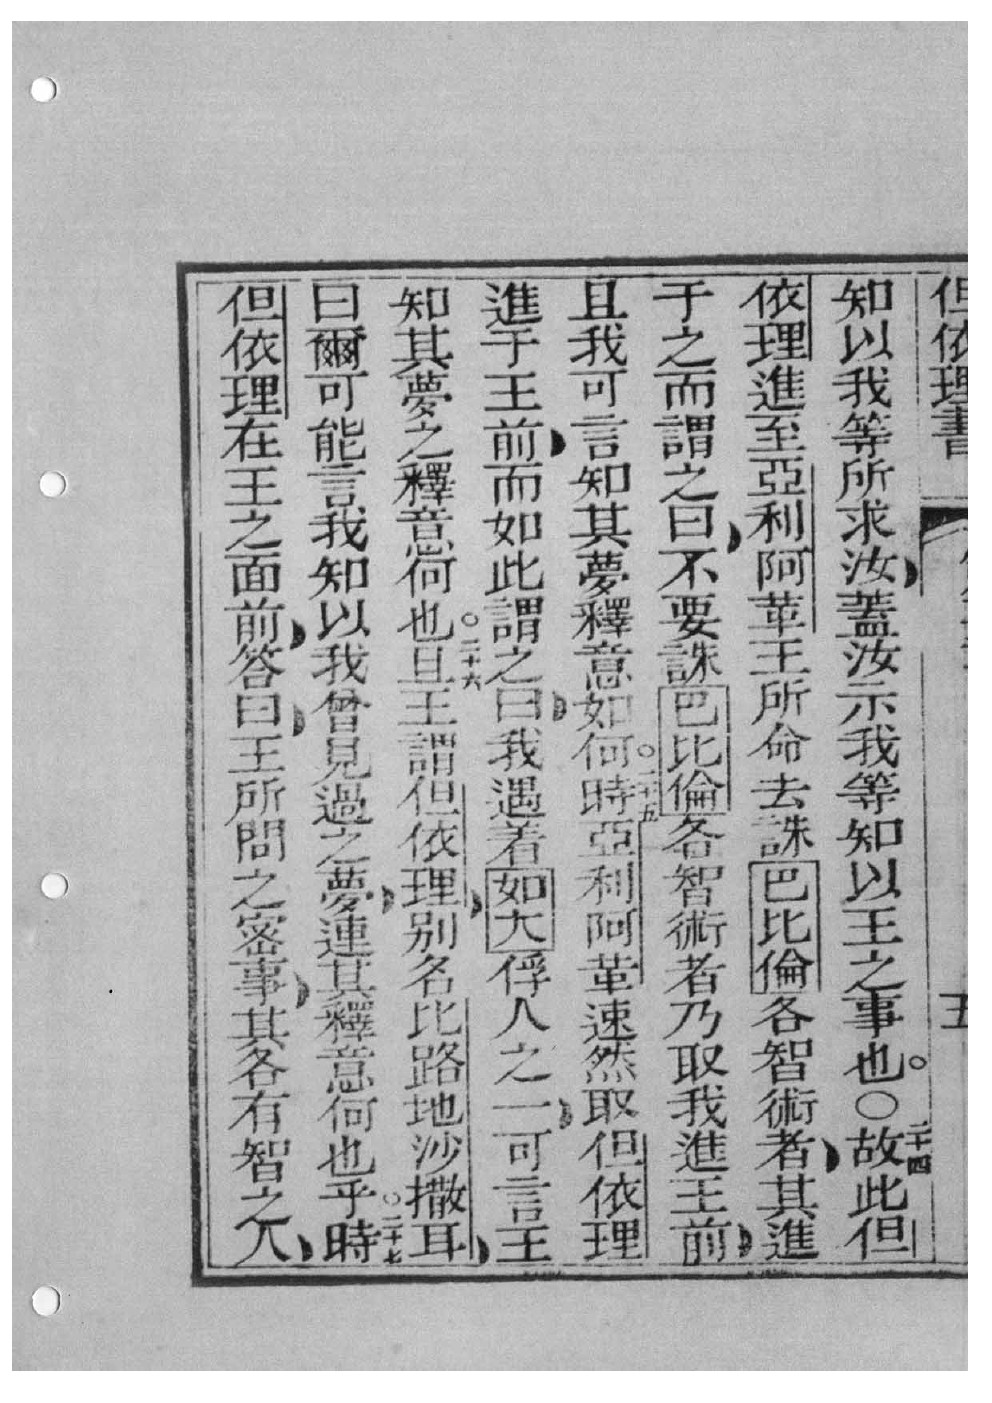 但依理書 五
知以我等所求汝蓋汝示我等知以王之事也○二十四故此但
依理進至亞利阿革王所命去誅巴比倫各智術者其進
于之而謂之曰不要誅巴比倫各智術者乃取我進王前
且我可言知其夢釋意如何○二十五時亞利阿革速然取但依理
進于王前而如此謂之曰我遇着如大俘人之一可言王
知其夢之釋意何也○二十六且王謂但依理別名比路地沙撒耳
曰爾可能言我知以我曾見過之夢連其釋意何也乎○二十七時
但依理在王之面前答曰王所問之密事其各有智之人